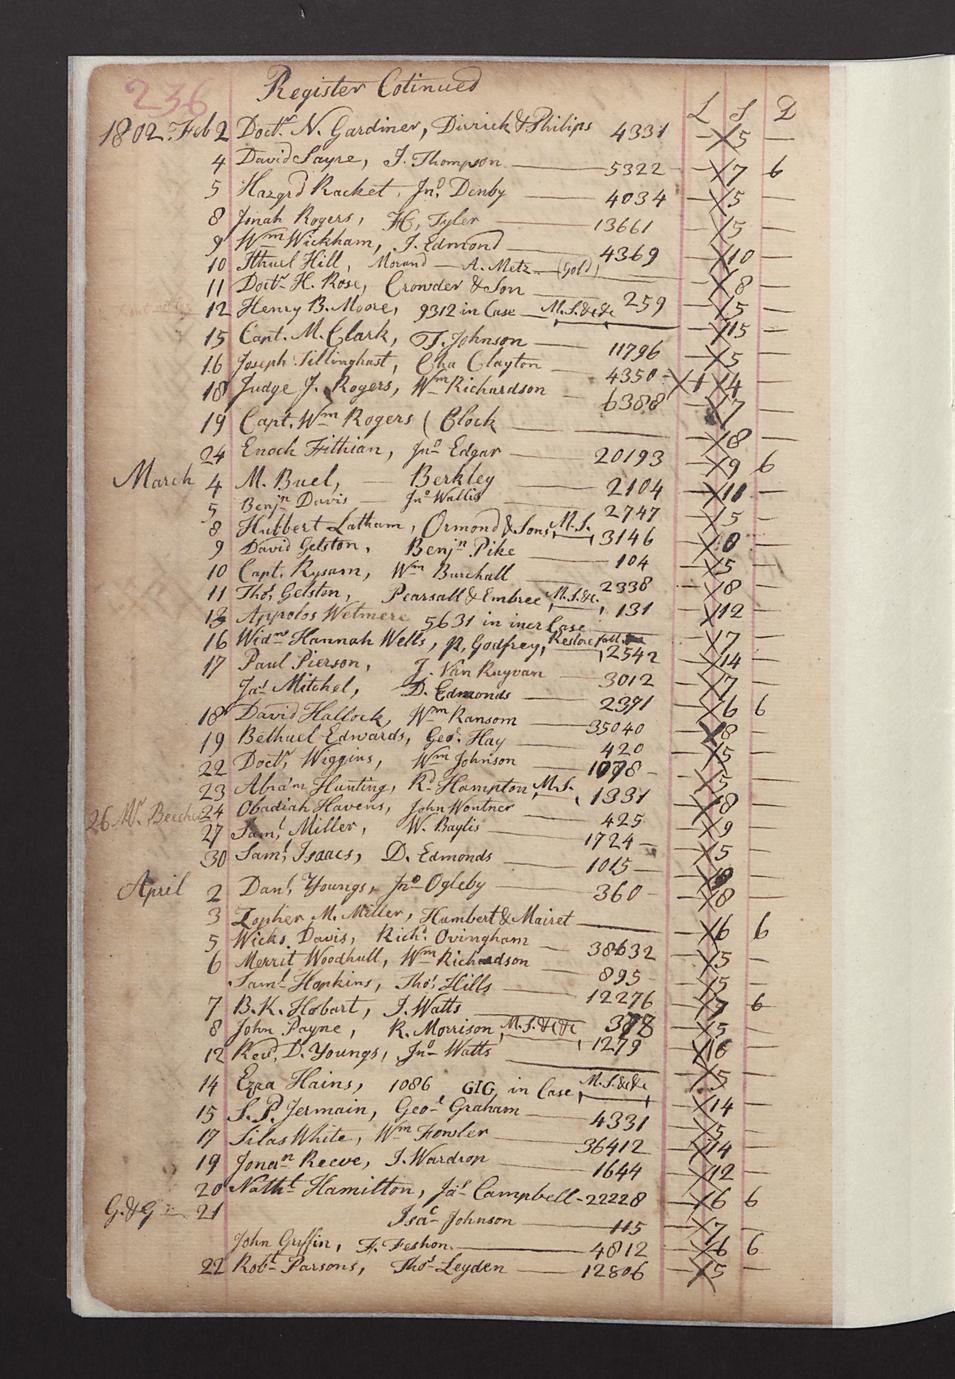 236 Register Cotinued
£ S D
1802. Feb 2 Doctr. N. Gardiner, Dirrick & Philips 4331 5 —
4 David Sayre, J. Thompson — 5322 — 7 6
5 Hazard Racket, Jno. Denby — 4034 — 5 —
8 Jonah Rogers, H, Tyler — 13661 5 —
9 Wm Wickham, J. Edmond — 4369 10 —
10 Ithuel Hill, Morand — A. Metz — (Gold) — 8 —
11 Doctr H. Rose, Crowder & Son — 259 5 —
12 Henry B. Moore, 9312 in Case — M.S.&c&c — 15 —
15 Capt. M. Clark, T. Johnson — 11796 5 —
16 Joseph Tillinghast, Cha Clayton — 4350 - 1 4 —
18 Judge J. Rogers, Wm Richardson — 6388 7 —
19 Capt. Wm Rogers ( Clock — 18 —
24 Enoch Fithian, Jno Edgar — 20193 9 6
March 4 M. Buel, — Berkley — 2104 11 —
5 Benjn Davis — Jno Wallis 2747 5 —
8 Hubbert Latham, Ormond & Sons, M.S. 3146 8 —
9 David Gelston, Benjn Pike — 104 5 —
10 Capt. Rysam, Wm Burchall — 2338 — 8 —
11 Thos. Gelston, Pearsall & Embree, M.S.&c. 131 12 —
13 Appolos Wetmere 5631 in iner Case — 7 —
16 Widw Hannah Wells, R, Godfrey, Restore full 2542 14 —
17 Paul Pierson, J. Van Ruyvan — 3012 7 —
Jas Mitchel, D. Edmonds — 2391 6 6
18 David Hallock, Wm Ransom — 35040 8 —
19 Bethuel Edwards, Geo. Hay — 420 5 —
22 Doctr. Wiggins, Wm Johnson — 1078 - 5 —
23 Abram Hunting, Rd Hampton, M.S. 1331 18 —
26 Mr. Beecher 24 Obadiah Havens, John Wontner — 425 9 —
27 Saml. Miller, W. Baylis — 1724 — 5 —
30 Saml. Isaacs, D. Edmonds — 1015 —
April 2 Danl. Youngs, Jno Ogleby — 360 — 8 —
3 Zopher M. Miller, Humbert & Mairet — 6 6
5 Wicks. Davis, Richd. Ovingham — 38632 5 —
6 Merrit Woodhull, Wm Richardson — 895 5 —
Saml Hopkins, Thos. Hills — 12276 7 6
7 B. K. Hobart, J. Watts — 378 5 —
8 John Payne, R. Morrison, M.S.&c&c 1279 16 —
12 Revd. D. Youngs, Jno Watts — 5 —
14 Ezra Hains, 1086 GIG in Case, M.S.&c&c 14 —
15 S. P. Jermain, Geo Graham — 4331 5 —
17 Silas White, Wm Fowler — 36412 14 —
19 Jonan Reeve, J. Wardrop — 1644 12 —
20 Natht Hamilton, Jas Campbell - 22228 6 6
G. & G 21 Isac Johnson — 115 7 —
John Griffin, F. Feshon — 4812 6 6
22 Robt Parsons, Thos Leyden — 12806 5 —